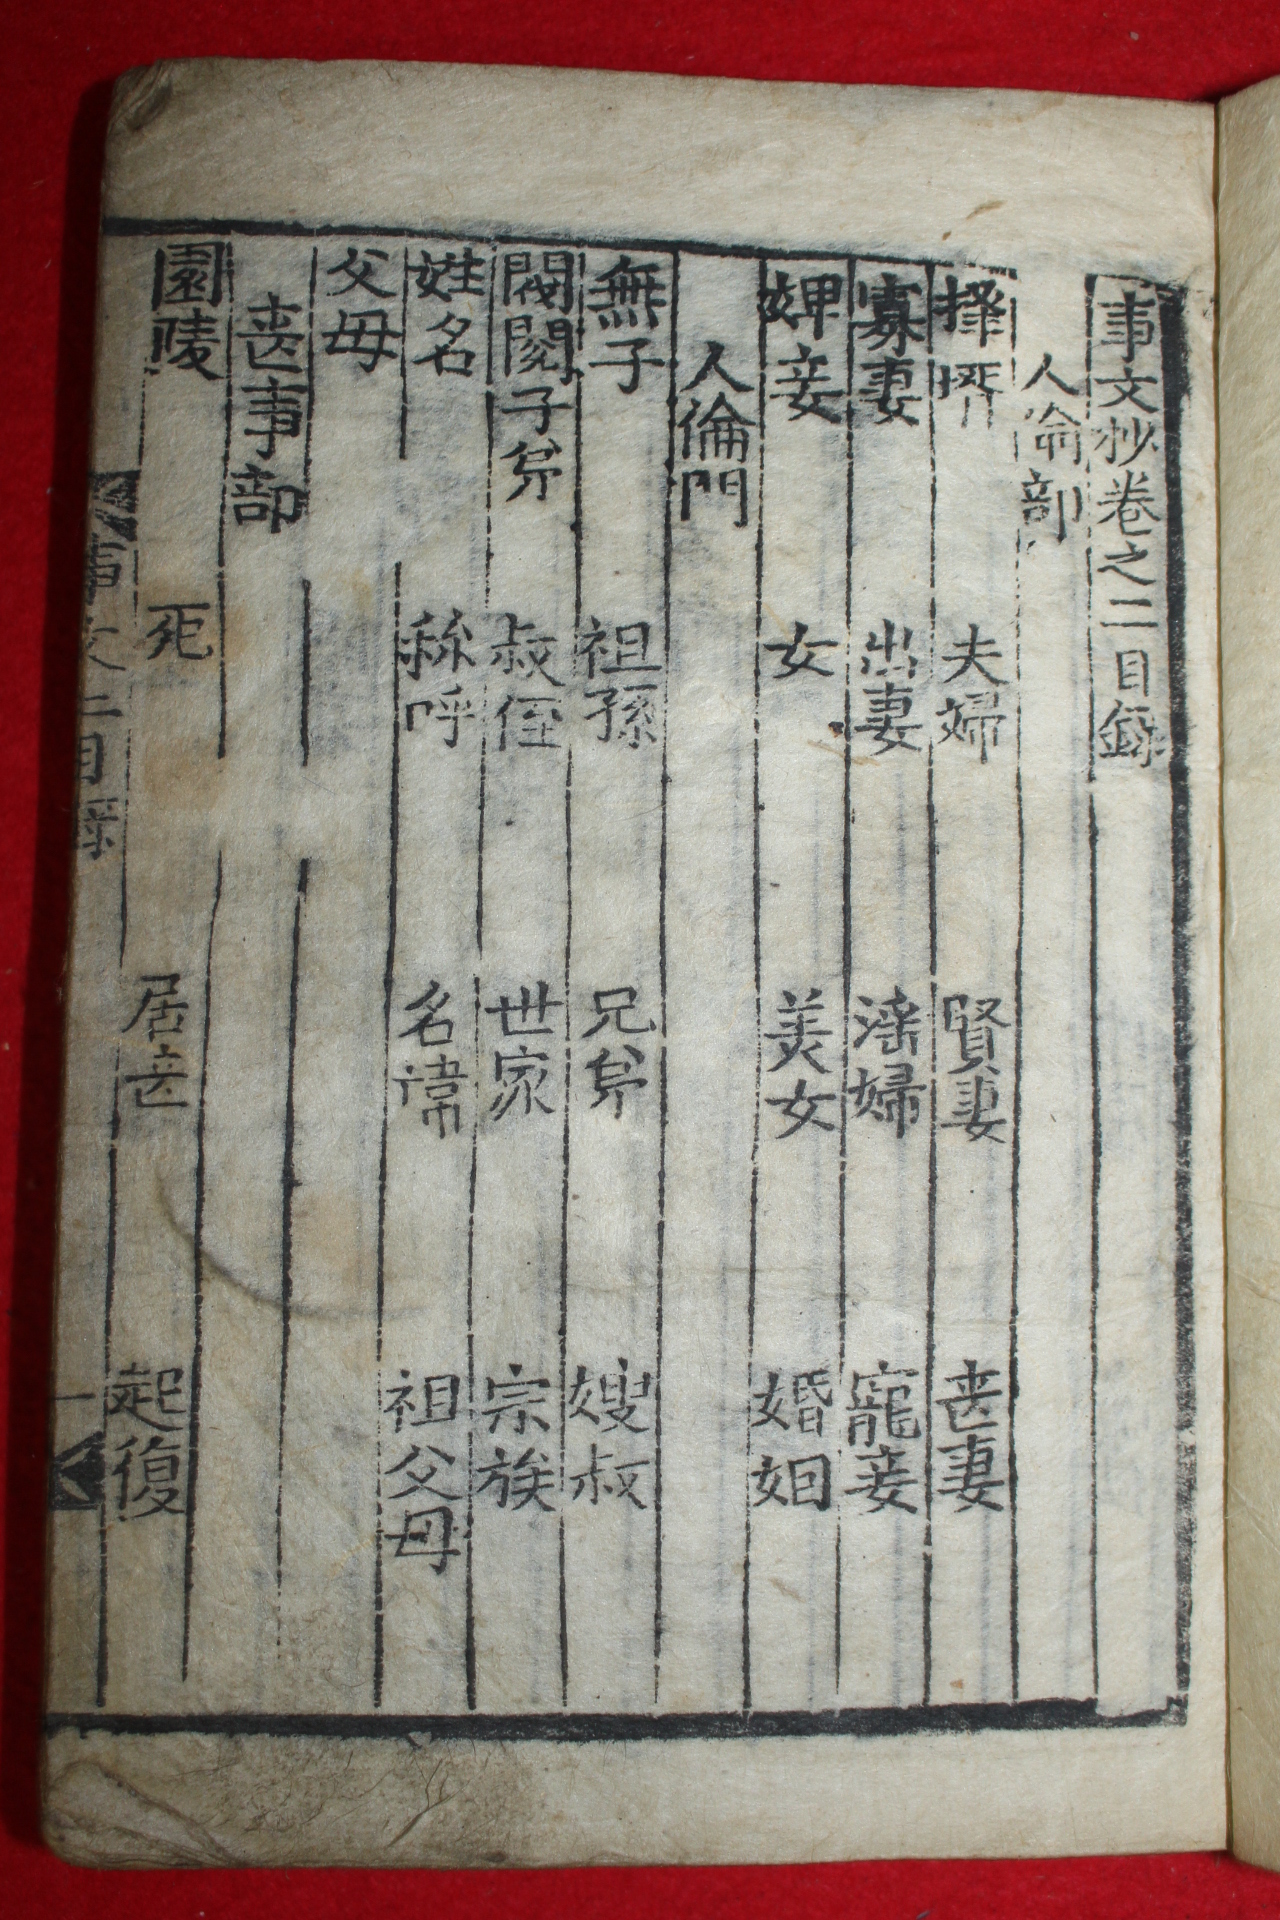 事文抄卷之二目録
人倫部
擇壻 夫婦 賢妻 丧妻
寡妻 出妻 淫婦 寵妾
婢妾 女 美女 婚姻
人倫門
無子 祖孫 兄弟 嫂叔
閥閱子弟 叔侄 世家 宗族
姓名 稱呼 名諱 祖父母
父母
丧事部
園陵 死 居丧 起復
事文二目録 一